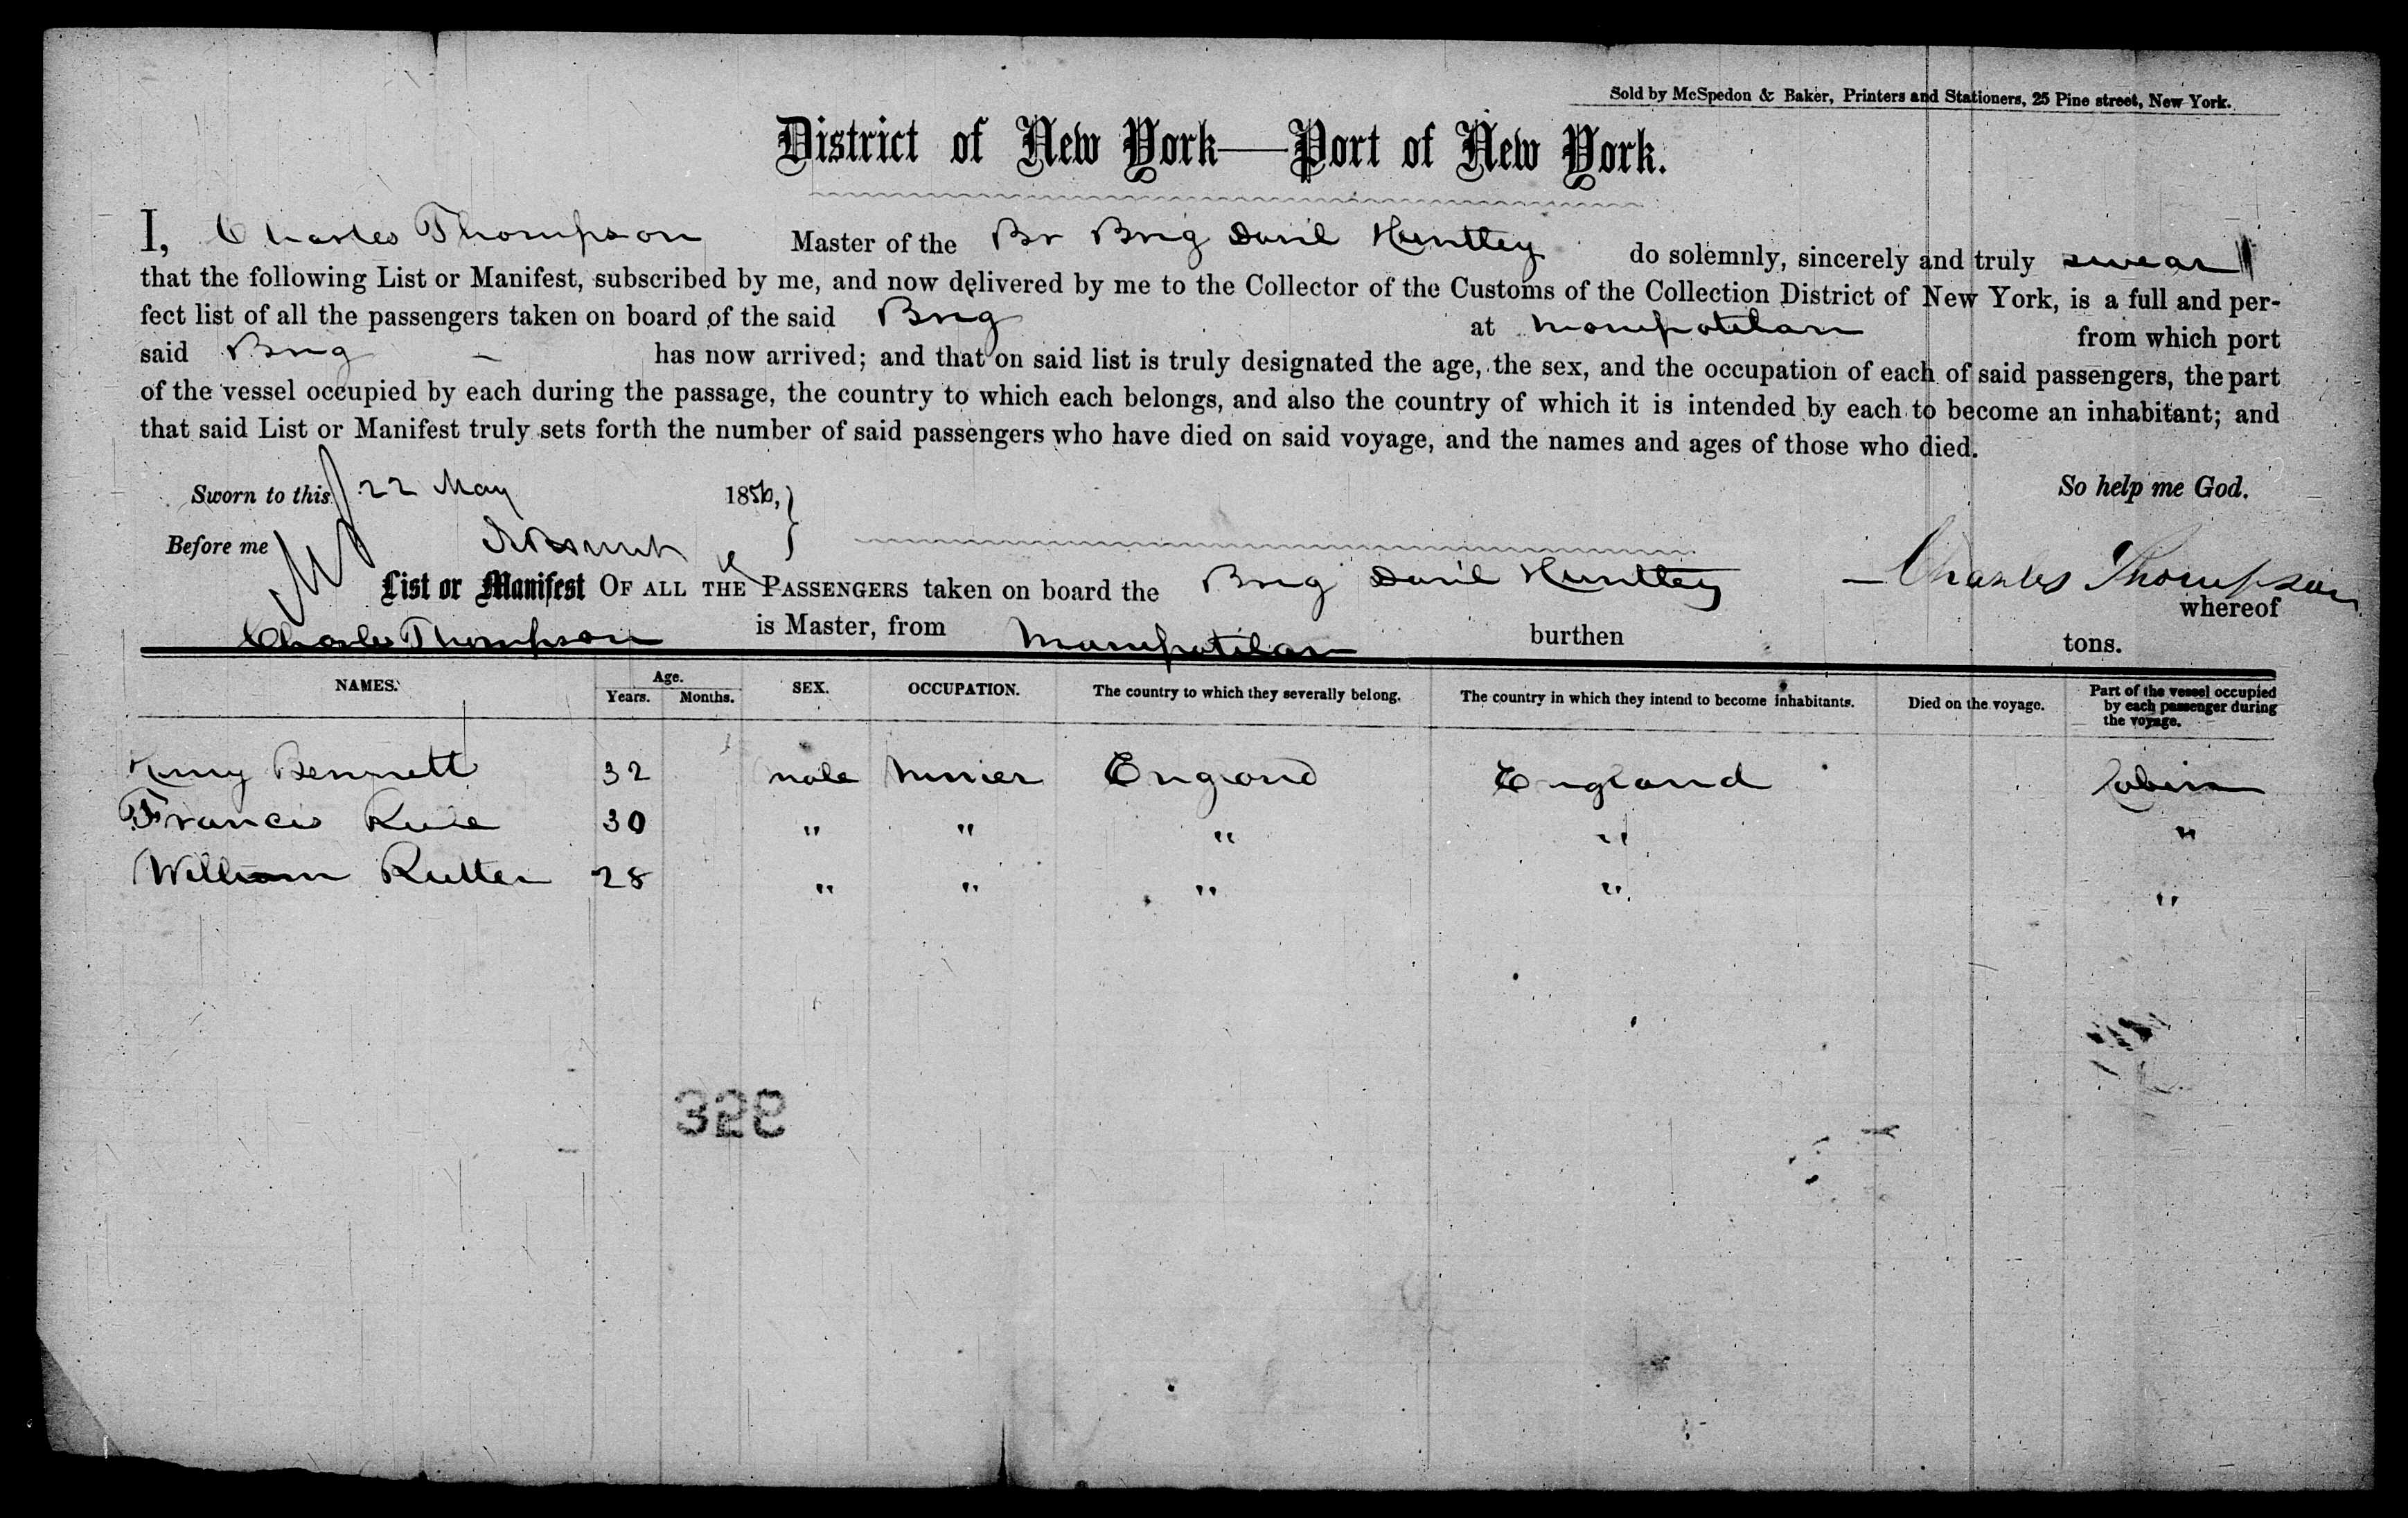 Sold by McSpedon & Baker, Printers and Stationers, 25 Pine street, New York.
District of New York—Port of New York.
I, Charles Thompson Master of the Br Brig Huntley do solemnly, sincerely and truly swear
that the following List or Manifest, subscribed by me, and now delivered by me to the Collector of the Customs of the Collection District of New York, is a full and per-
fect list of all the passengers taken on board of the said Brig at from which port
said Brig - has now arrived; and that on said list is truly designated the age, the sex, and the occupation of each of said passengers, the part
of the vessel occupied by each during the passage, the country to which each belongs, and also the country of which it is intended by each to become an inhabitant; and
that said List or Manifest truly sets forth the number of said passengers who have died on said voyage, and the names and ages of those who died.
Sworn to this 22 May 1856, So help me God.
Before me
Charles Thompson
List or Manifest OF ALL THE PASSENGERS taken on board the Brig Huntley whereof
Charles Thompson is Master, from burthen tons.
NAMES. Age. Years. Months. SEX. OCCUPATION. The country to which they severally belong. The country in which they intend to become inhabitants. Died on the voyage. Part of the vessel occupied by each passenger during the voyage.
Bennett 32 male England England Cabin
Francis 30 " " " " "
William Rutter 28 " " " " "